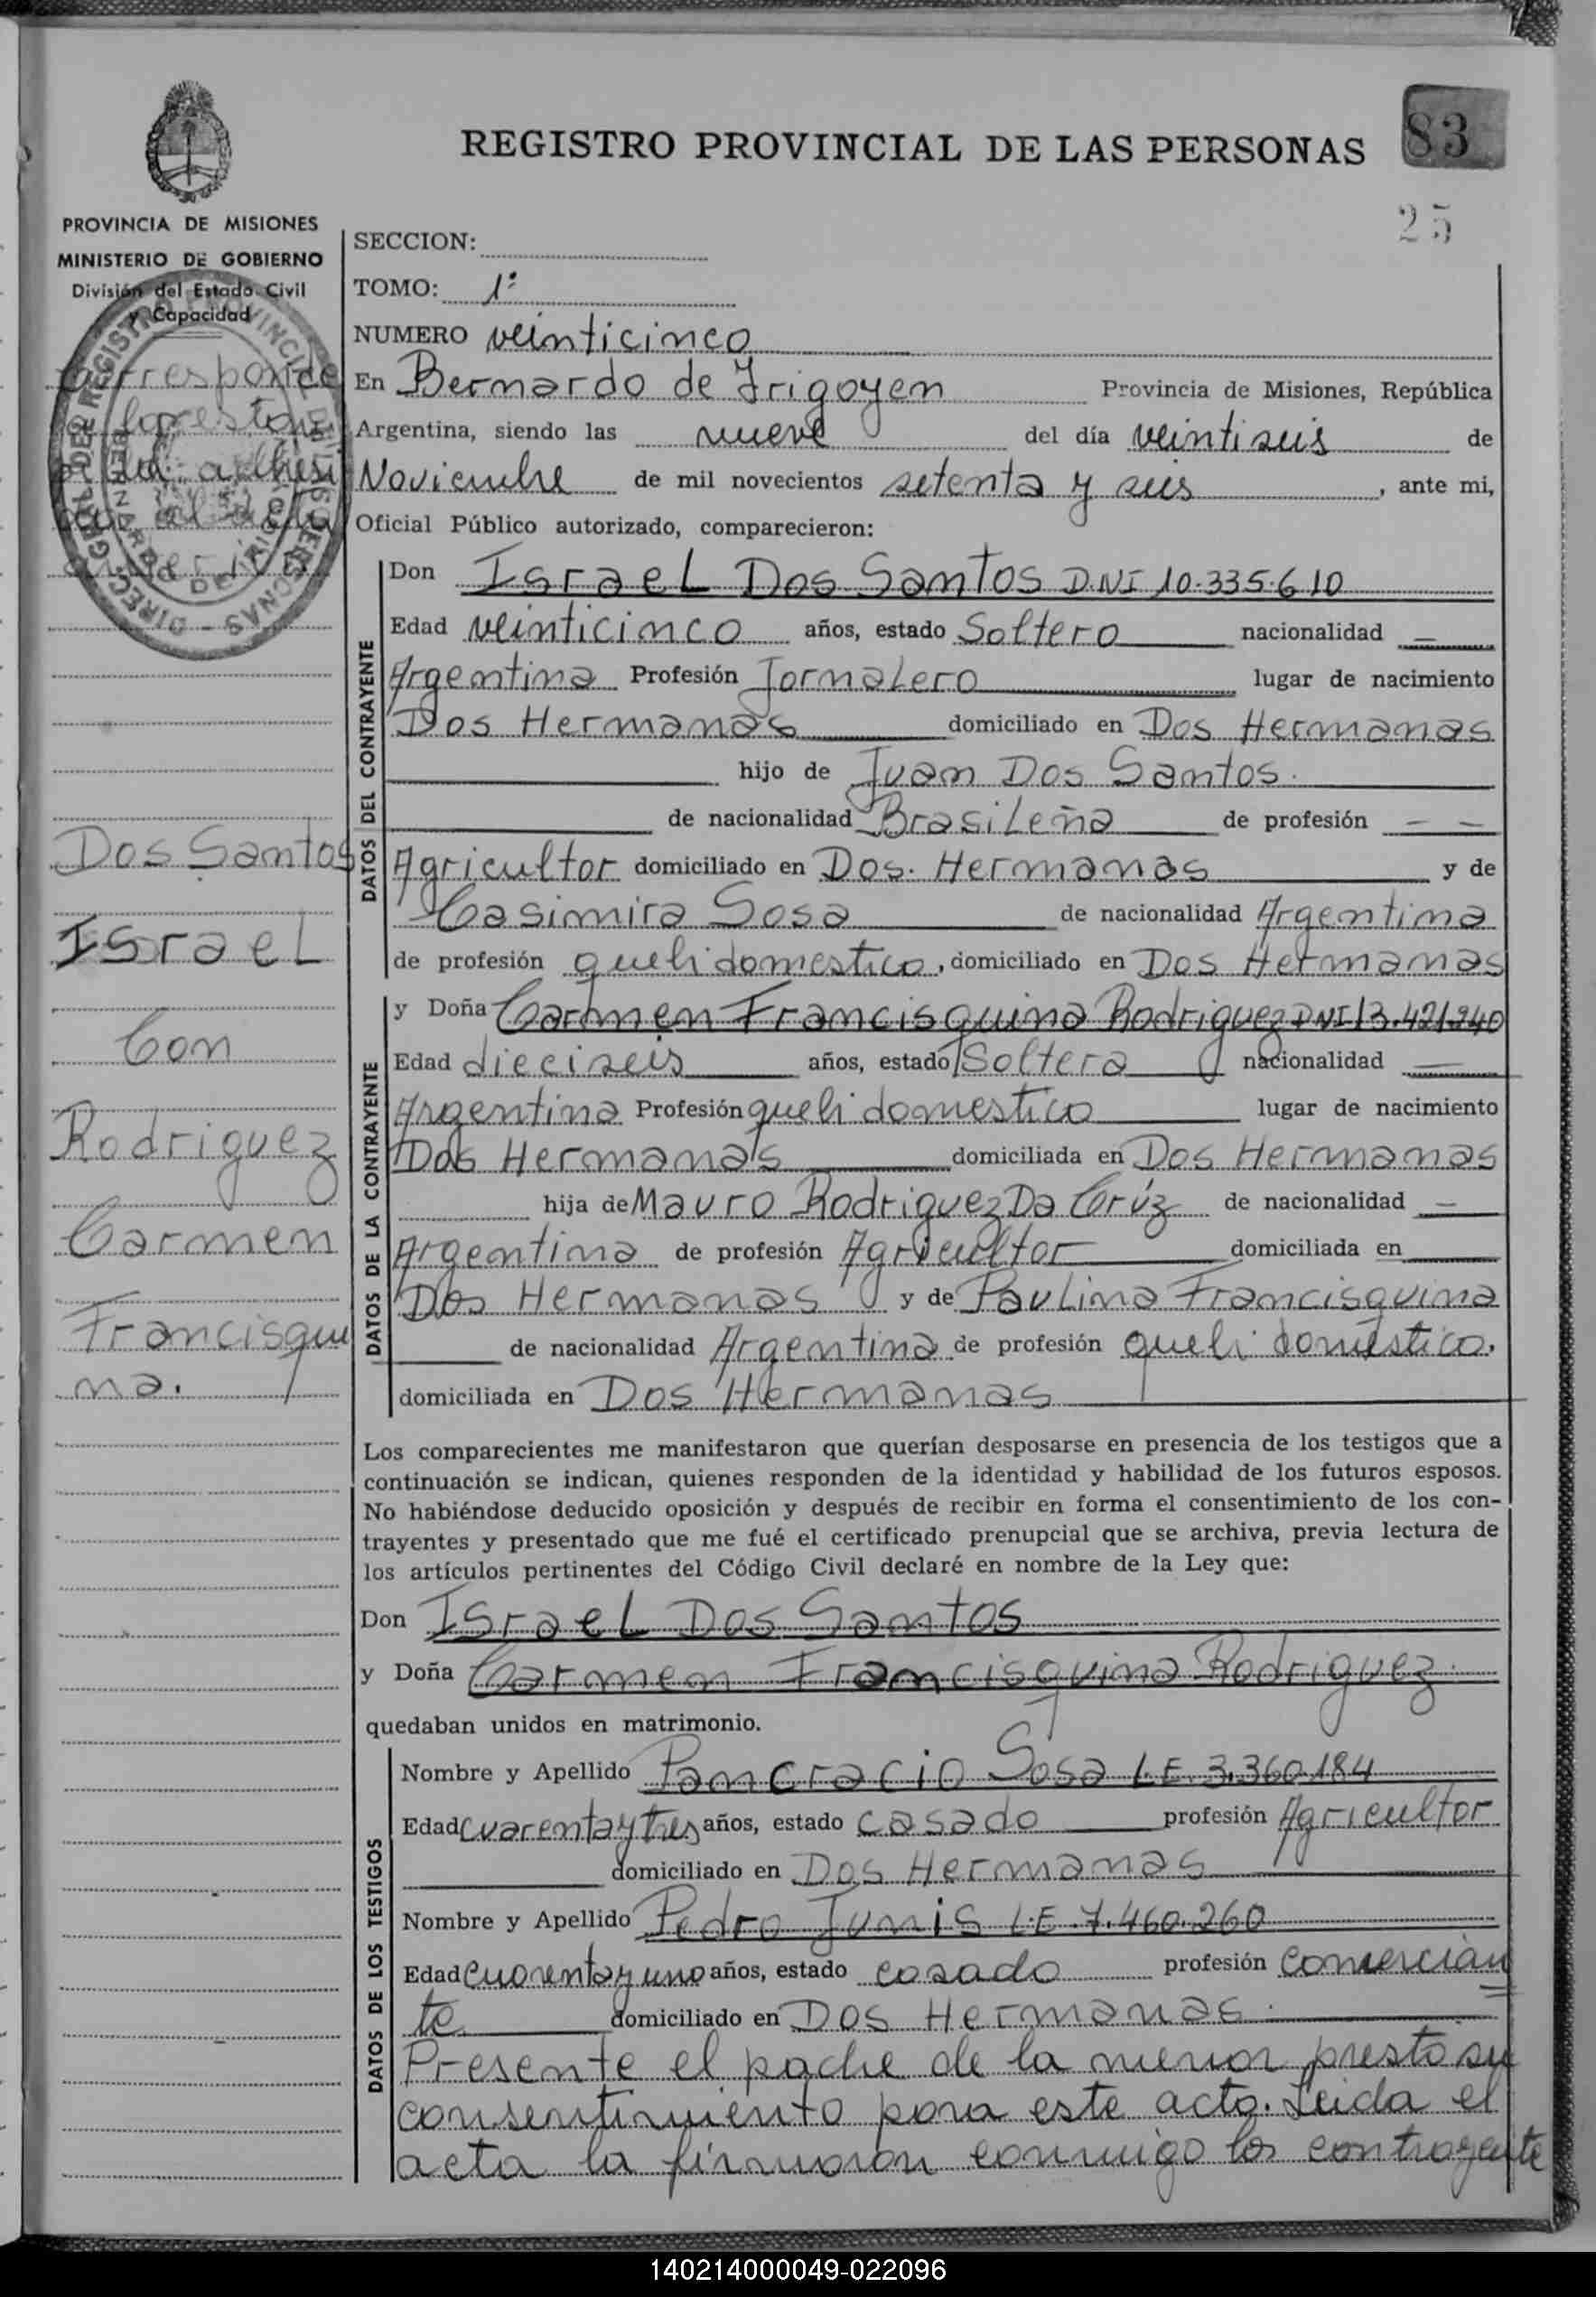 REGISTRO PROVINCIAL DE LAS PERSONAS
83
25
PROVINCIA DE MISIONES
MINISTERIO DE GOBIERNO
División del Estado Civil
y Capacidad
SECCION:
TOMO: 1º
NUMERO veinticinco
En Bernardo de Irigoyen Provincia de Misiones, República
Argentina, siendo las nueve del día veintiseis de
Noviembre de mil novecientos setenta y seis, ante mi,
Oficial Público autorizado, comparecieron:
DATOS DEL CONTRAYENTE
Don Israel Dos Santos D.N.I 10.335.610
Edad veinticinco años, estado Soltero nacionalidad
Argentina Profesión Jornalero lugar de nacimiento
Dos Hermanas domiciliado en Dos Hermanas
hijo de Juan Dos Santos.
de nacionalidad Brasileña de profesión
Agricultor domiciliado en Dos. Hermanas y de
Casimira Sosa de nacionalidad Argentina
de profesión queh domestico, domiciliado en Dos Hermanas
DATOS DE LA CONTRAYENTE
y Doña Carmen Francisquina Rodriguez DNI 13.421.240
Edad dieciseis años, estado Soltera nacionalidad
Argentina Profesión queh domestico lugar de nacimiento
Dos Hermanas domiciliada en Dos Hermanas
hija de Mauro Rodriguez Da Crúz de nacionalidad
Argentina de profesión Agricultor domiciliada en
Dos Hermanas y de Paulina Francisquina
de nacionalidad Argentina de profesión queh domestico.
domiciliada en Dos Hermanas
Dos Santos
Israel
Con
Rodriguez
Carmen
Francisqui
na.
Los comparecientes me manifestaron que querían desposarse en presencia de los testigos que a
continuación se indican, quienes responden de la identidad y habilidad de los futuros esposos.
No habiéndose deducido oposición y después de recibir en forma el consentimiento de los con-
trayentes y presentado que me fué el certificado prenupcial que se archiva, previa lectura de
los artículos pertinentes del Código Civil declaré en nombre de la Ley que:
Don Israel Dos Santos
y Doña Carmen Francisquina Rodriguez.
quedaban unidos en matrimonio.
DATOS DE LOS TESTIGOS
Nombre y Apellido Pancracio Sosa L.E. 3.360.184
Edad cuarenta y tres años, estado casado profesión Agricultor
domiciliado en Dos Hermanas
Nombre y Apellido Pedro Junis L.E 7.460.260
Edad cuarenta y uno años, estado casado profesión Comercian
te domiciliado en Dos Hermanas.
Presente el padre de la menor prestó su
consentimiento para este acto. Leida el
acta la firmaron conmigo los contrayente
140214000049-022096